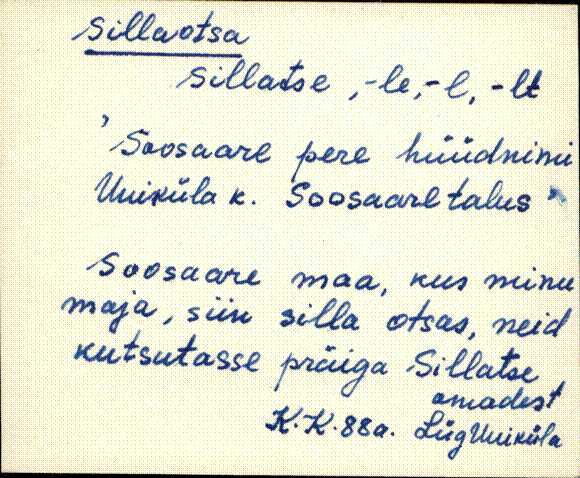 Sillaotsa
Sillatse, -le, -l, -lt
'Soosaare pere hüüdnimi
Uniküla k. Soosaare talus'
Soosaare maa, kus minu
maja, siin silla otsas, neid
kutsutasse präiga Sillatse
omadest
K.K. 88a. LügUniküla